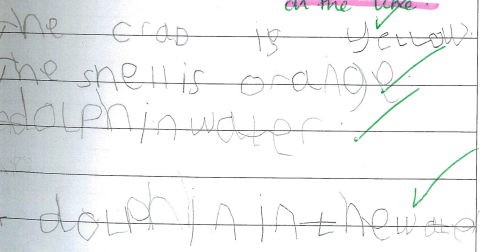 on the line.
The crab is yellow.
The shell is orange.
dolphin water.
dolphin in the wate